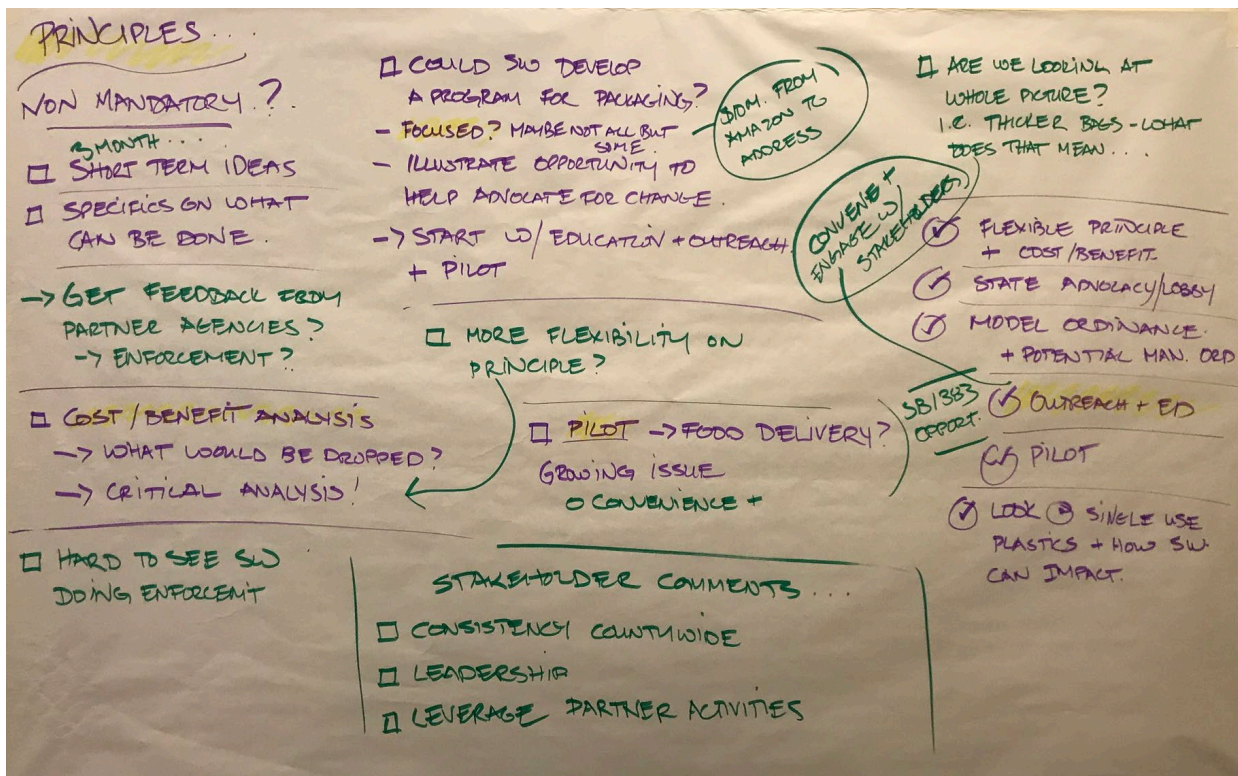 PRINCIPLES...
NON MANDATORY?
3 MONTH...
SHORT TERM IDEAS
SPECIFICS ON WHAT
CAN BE DONE.
-> GET FEEDBACK FROM
PARTNER AGENCIES?
-> ENFORCEMENT?
COST/BENEFIT ANALYSIS
-> WHAT WOULD BE DROPPED?
-> CRITICAL ANALYSIS!
HARD TO SEE SW
DOING ENFORCEMIT
COULD SW DEVELOP
A PROGRAM FOR PACKAGING?
- FOCUSED? MAYBE NOT ALL BUT
SOME
- ILLUSTRATE OPPORTUNITY TO
HELP ADVOCATE FOR CHANGE.
-> START W/ EDUCATION + OUTREACH
+ PILOT
FROM
AMAZON TO
ADDRESS
CONVENE +
ENGAGE W/
STAKEHOLDERS
MORE FLEXIBILITY ON
PRINCIPLE?
PILOT -> FOOD DELIVERY?
GROWING ISSUE
CONVENIENCE +
STAKEHOLDER COMMENTS...
CONSISTENCY COUNTYWIDE
LEADERSHIP
LEVERAGE PARTNER ACTIVITIES
ARE WE LOOKING AT
WHOLE PICTURE?
I.E. THICKER BAGS - WHAT
DOES THAT MEAN...
FLEXIBLE PRINCIPLE
+ COST/BENEFIT.
STATE ADVOCACY/LOBBY
MODEL ORDINANCE.
+ POTENTIAL MAN. ORD
SB1383
OPPORT.
OUTREACH + ED
PILOT
LOOK @ SINGLE USE
PLASTICS + HOW SW
CAN IMPACT.